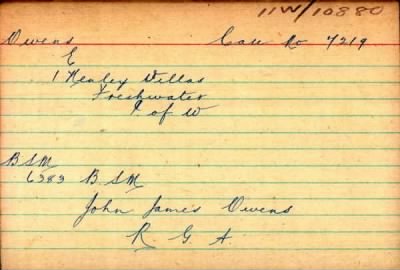 11W/10880
Owens Case No 7219
E
1 Henley Villas
Freshwater
I of W
BSM
6383 BSM
John James Owens
R G A